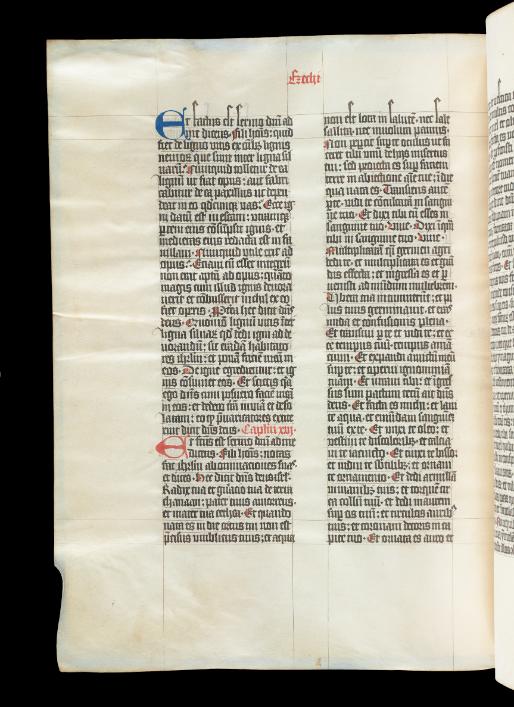 Ezechi
Et factus est sermo dnī ad
me dicens· Fili hoīs: quid
fiet de ligno vitis ex oībꝫ lignis
nemoꝝ que sunt inter ligna sil
varū? Nunquid tolletur de ea
lignū ut fiat opus: aut fabri
cabitur de ea paxillus ut depen
deat in eo qdcūqꝫ vas? Ecce ig
ni datū est in escam: utrāqꝫ
ptem eius cōsūpsit ignis· et
medietas eius redacta est in fa
villam· Nunquid utile erit ad
opus? Etiam cū esset integrū
non erat aptū ad opus: quāto
magis cum illud ignis devora
verit et cōbusserit nichil ex eo
fiet operis· Ppterea hec dicit dn̄s
deus· Quomō lignū vitis inter
ligna silvaꝝ qd dedi igni ad de
vorandū: sic tradā habitato
res ihrlm· et ponā faciē meā in
eos· De igne egredientur: et ig
nis cōsumet eos· Et scietis qa
ego dn̄s cum posuero faciē meā
in eos: et dedero trā inviā et deso
latam: eo qp pvaricatores extite
rint dicit dn̄s deus· Capłm xvj·
Et factus est sermo dn̄i ad me
dicens· Fili hoīs: notas
fac ihrlm abominationes suas
et dices· Hec dicit dn̄s deus ihrlm·
Radix tua et gnāco tua de terra
chanaan: pater tuus amorreus·
et mater tua cethea· Et quando
nata es in die ortus tui non est
pcisus umbilicus tuus: et aqua
non es lota in salutē· nec sale
salita· nec involuta pannis·
Non pepcit sup te oculus ut fa
ceret tibi unū de hijs misertus
tui: sed proiecta es sup faciem
terre in abiectione aīe tue: in die
qua nata es· Transiens autē
p te· vidi te cōculcari in sangui
ne tuo· Et dixi tibi cū esses in
sanguine tuo· Vive· Dixi inqm
tibi in sanguine tuo· Vive·
Multiplicatā qi germen agri
dedi te· et multiplicata es et grā
dis effecta: et ingressa es et p
venisti ad mūdum muliebrem·
Ubera tua intumuerūt: et pi
lus tuus germinavit· et eras
nuda et confusione plena·
Et transivi p te et vidi te: et ec
ce tempus tuū· tempus amā
tium· Et expandi amictū meū
sup te: et operui ignominiā
tuam· Et iuravi tibi: et igres
sus sum pactum tecū ait dn̄s
deus· Et facta es michi: et lavi
te aqua· et emūdavi sanguinē
tuū ex te· Et unxi te oleo: et
vestivi te discoloribꝫ· et calcia
vi te iacincto· Et cinxi te bisso·
et indui te subtilibꝫ: et ornavi
te ornamento· Et dedi armillas
in manibꝫ tuis: et torquē cir
ca collū tuū· et dedi inaurem
sup os tuū: et circulos auribꝫ
tuis: et coronam decoris in ca
pite tuo· Et ornata es auro et